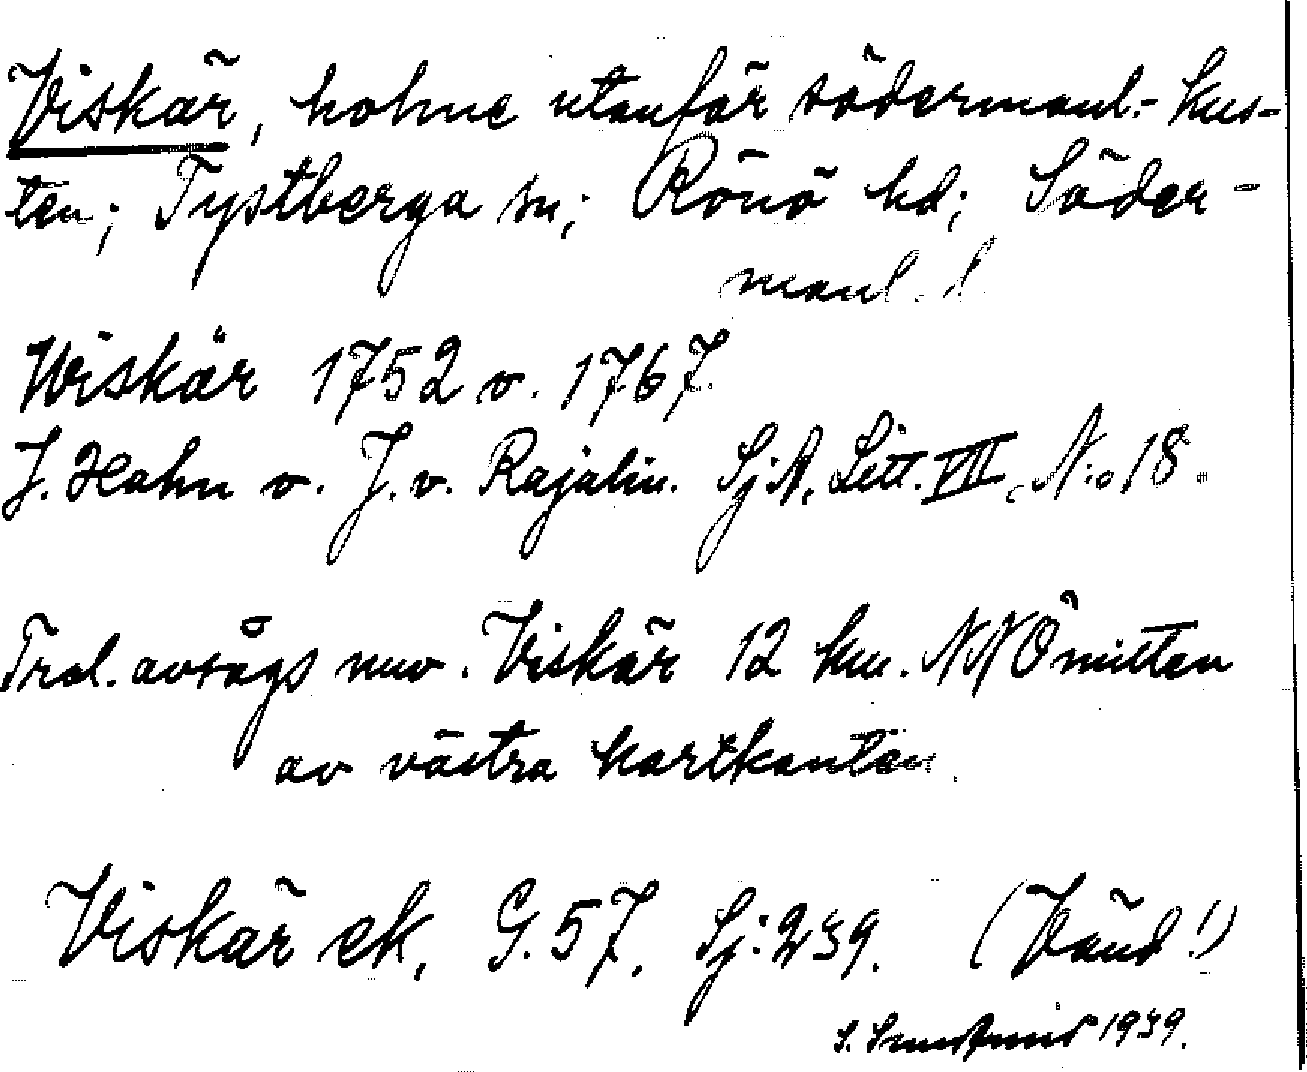 Viskär, holme utanför södermanl.- kus-
ten; Tystberga sn; Rönö hd; Söder-
manl. l
Wiskär 1752 o. 1767.
J. Hahn o. J. v. Rajalin. Sj.A. Litt. VII, N:o 18.
Trol. avsågs nuv. Viskär 12 km. NNO mitten
av västra kartkanten.
Viskär ek. G. 57. Sj: 239. (Vänd!)
S. 1939.